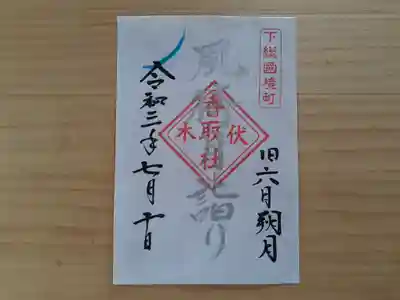 下総國境町
旧六月朔月
風
詣り
伏木
香取社
令和三年七月十日